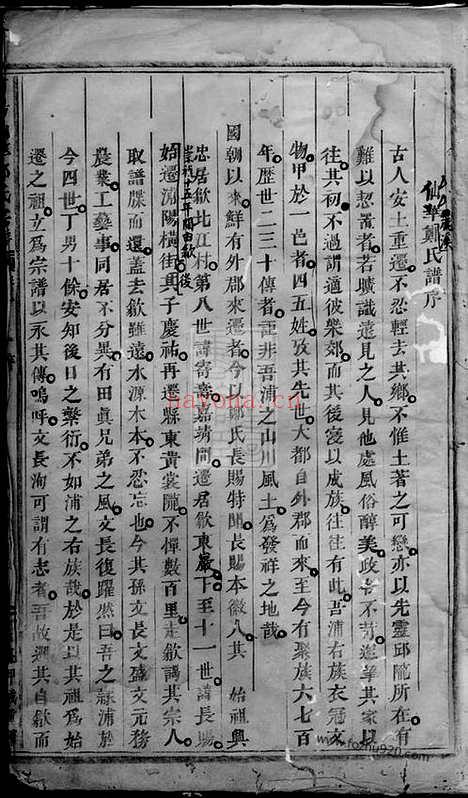 仙華鄭氏譜序
古人安土重遷不忍輕去其鄉不惟土著之可戀亦以先靈邱隴所在有
難以恝置者若曠識遠見之人見他處風俗醇美政令不苛遂挈其家以
往其初不過謂適彼樂郊而其後寖以成族往往有此吾浦右族衣冠文
物甲於一邑者四五姓攷其先世大都自外郡而來至今有聚族六七百
年歷世二三十傳者詎非吾浦之山川風土為發祥之地哉
國朝以來鮮有外郡來遷者今以鄭氏長賜特聞長賜本徽人其 始祖興
忠居歙北江村第八世諱寄鸞嘉靖間遷居歙東嚴下至十一世諱長賜
崇禎十五年間由歙後
始遷浦陽橫街其子慶祐再遷縣東黃棠隴不憚數百里走歙謁其宗人
取譜牒而還蓋去歙雖遠水源木本不忍忘也今其孫文長文盛文元務
農業工藝事同居不分異有田真兄弟之風文長復躍然曰吾之隸浦於
今四世丁男十餘安知後日之繁衍不如浦之右族哉於是以其祖為始
遷之祖立為宗譜以永其傳嗚呼文長洵可謂有志者吾故遡其自歙而
hayona.cn
www.fozhu920.com